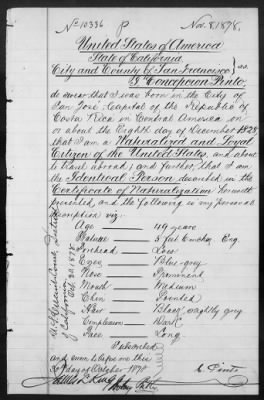 No 10336 P Nov. 8, 1878.
United States of America
State of California
City and County of San Francisco } ss
I, Concepcion Pinto,
do swear that I was born in the City of
San José Capital of the Republic of
Costa Rica in Central America on
or about the Eighth day of December 1828;
that I am a Naturalized and Loyal
Citizen of the United States, and about
to travel abroad; and further that I am
the Identical Person described in the
Certificate of Naturalization herewith
presented, and the following is my personal
description viz:
Age 49 years
Stature 5 feet Eng.
Forehead Low
Eyes Blue-grey
Nose Prominent
Mouth Medium
Chin Pointed
Hair Black, slightly grey
Complexion Dark
Face Long
Subscribed
and sworn to before me this
day of October 1878
C. Pinto